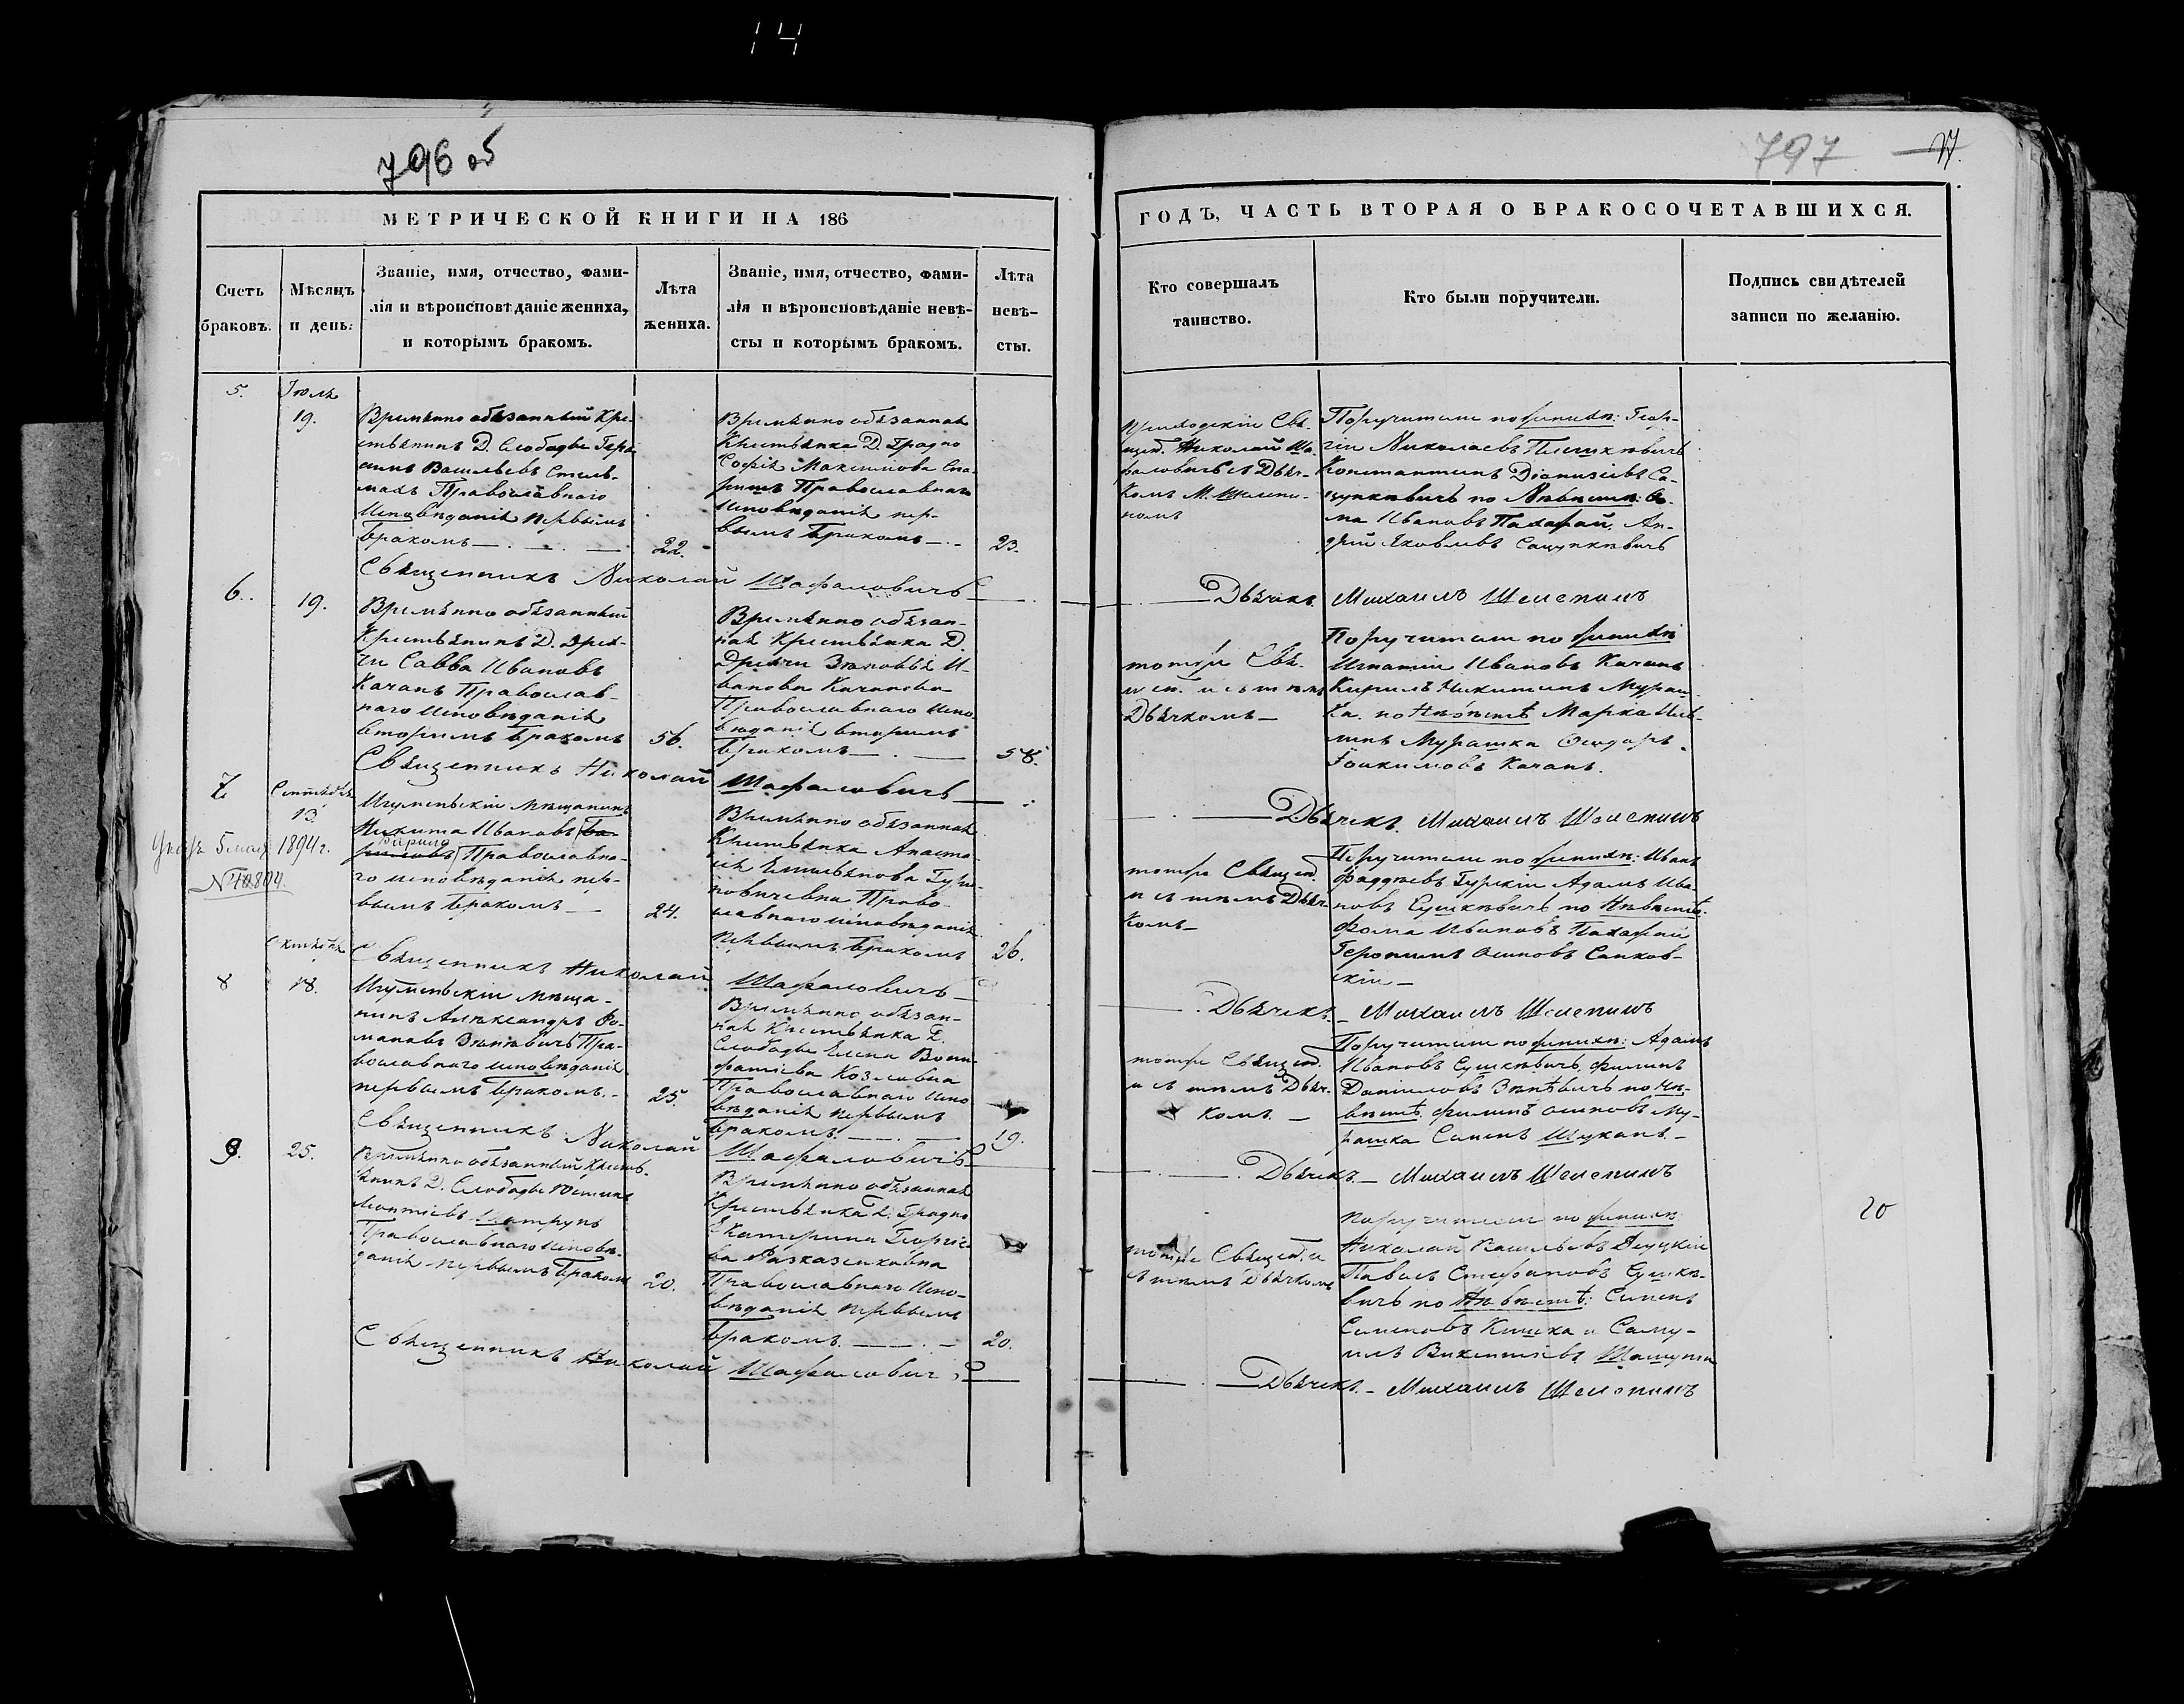 14
796 об
797
77.
МЕТРИЧЕСКОЙ КНИГИ НА 186
ГОДЪ, ЧАСТЬ ВТОРАЯ О БРАКОСОЧЕТАВШИХСЯ.
Счетъ
браковъ.
Мѣсяцъ
и день.
Званіе, имя, отчество, фами-
лія и вѣроисповѣданіе жениха,
и которымъ бракомъ.
Лѣта
жениха.
Званіе, имя, отчество, фами-
лія и вѣроисповѣданіе невѣ-
сты и которымъ бракомъ.
Лѣта
невѣ-
сты.
Кто совершалъ
таинство.
Кто были поручители.
Подпись свидѣтелей
записи по желанію.
5.
Іюля
19.
Временно обязанный Кре-
стьянинъ Д. Слободы Гера-
симъ Васильевъ Стель-
махъ Православнаго
Исповѣданія первымъ
бракомъ
22.
Временно обязанная
Крестьянка Д. Градно
Софія Максимова
Православнаго
Исповѣданія пер-
вымъ бракомъ
23.
Приходскій Свя-
щен. Николай Ша-
фаловичъ съ Дьяч-
комъ М. Шелепи-
номъ
Поручители по женихѣ: Геор-
гій Николаевъ
Константинъ Діонизіевъ Са-
цункевичъ по Невѣстѣ: Фо-
ма Ивановъ Пахафай, Ан-
дрей Яковлевъ Сацункевичъ
Священникъ Николай Шафаловичъ
Дьячекъ Михаилъ Шелепинъ
6.
19.
Временно обязанный
Крестьянинъ Д. Дреч-
чи Савва Ивановъ
Качанъ Православ-
наго исповѣданія
вторымъ бракомъ
56.
Временно обязан-
ная Крестьянка Д.
Дречи Зеновія И-
ванова Качанова
Православнаго испо-
вѣданія вторымъ
бракомъ
58.
тотже Свя-
щен. и съ тѣмъ
Дьячкомъ
Поручители по женихѣ
Игнатій Ивановъ Качанъ
Кирилъ Никитинъ Мураш-
ка. по Невѣстѣ Марко
Мурашка
Іоакимовъ Качанъ.
Священникъ Николай Шафаловичъ
Дьячекъ. Михаилъ Шелепинъ
7.
Сентября
13.
Указъ 5 мая 1894 г.
№
Игуменскій мѣщанинъ
Никита Ивановъ
Православна-
го исповѣданія пер-
вымъ бракомъ
24.
Временно обязанная
Крестьянка Анаста-
сія Емельянова Гури-
новичевна Право-
славнаго исповѣданія
первымъ бракомъ
26.
тотже Священ.
и съ тѣмъ Дьяч-
комъ
Поручители по женихѣ: Иванъ
Фаддѣевъ Гурскій Адамъ Ива-
новъ Сушкевичъ по Невѣстѣ:
Фома Ивановъ Пахафай
Геронимъ Осиповъ Санков-
скій
Священникъ Николай Шафаловичъ
Дьячекъ. Михаилъ Шелепинъ
8
Октября
18.
Игуменскій мѣща-
нинъ Александръ Ро-
мановъ Зенкевичъ Пра-
вославнаго исповѣданія
первымъ бракомъ.
25.
Временно обязан-
ная Крестьянка Д.
Слободы Елена Вони-
фатіева Козловна
Православнаго испо-
вѣданія первымъ
бракомъ.
19.
тотже Священ.
и съ тѣмъ Дьяч-
комъ.
Поручители по женихѣ: Адамъ
Ивановъ Сушкевичъ, Филипъ
Даниловъ по Не-
вѣстѣ: Филипъ Осиповъ Му-
рашка Семенъ Шуканъ.
Священникъ Николай Шафаловичъ
Дьячекъ. Михаилъ Шелепинъ
9.
25.
Временно обязанный Кресть-
янинъ Д. Слободы Юстинъ
Леонтіевъ
Православнаго исповѣ-
данія первымъ бракомъ
20.
Временно обязанная
Крестьянка Д. Градно
Екатерина Георгіе-
ва
Православнаго испо-
вѣданія первымъ
бракомъ.
20.
тотже Священ. и
съ тѣмъ Дьячкомъ
Поручители по женихѣ:
Николай Васильевъ
Павелъ Стефановъ Сушке-
вичъ по Невѣстѣ: Семенъ
Семеновъ Кишка и Саму-
илъ Викентіевъ
20
Священникъ Николай Шафалович
Дьячекъ. Михаилъ Шелепинъ